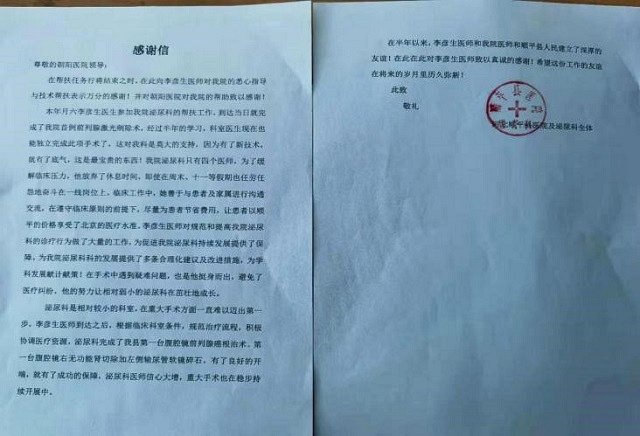 感谢信
尊敬的朝阳医院领导：
在帮扶任务行将结束之时，在此向李彦生医师对我院的悉心指导
与技术帮扶表示万分的感谢！并对朝阳医院对我院的帮助致以感谢！
本年月六李彦生医生参加我院泌尿科的帮扶工作，到达当日就完
成了我院首例前列腺激光剜除术。经过半年的学习，科室医生现在也
能独立完成此项手术了，这对我科是莫大的支持，因为有了新技术，
就有了底气，这是最宝贵的东西！我院泌尿科只有四个医师，为了缓
解临床压力，他放弃了休息时间，即使在周末、十一等假期也任劳任
怨地奋斗在一线岗位上，临床工作中，她善于与患者及家属进行沟通
交流，在遵守临床原则的前提下，尽量为患者节省费用，让患者以顺
平的价格享受了北京的医疗水准。李彦生医师对规范和提高我院泌尿
科的诊疗行为做了大量的工作，为促进我院泌尿科持续发展提供了保
障，为我院泌尿科科的发展提供了多条合理化建议及改进措施，为学
科发展献计献策！在手术中遇到疑难问题，也是他挺身而出，避免了
医疗纠纷，他的努力让相对弱小的泌尿科在茁壮地成长。
泌尿科是相对较小的科室，在重大手术方面一直难以迈出第一
步。李彦生医师到达之后，根据临床科室条件，规范治疗流程，积极
协调医疗资源，泌尿科完成了我县第一台腹腔镜前列腺癌根治术、第
一台腹腔镜右无功能肾切除加左侧输尿管软镜碎石。有了良好的开
端，就有了成功的保障，泌尿科医师信心大增，重大手术也在稳步持
续开展中。
在半年以来，李彦生医师和我院医师和顺平县人民建立了深厚的
友谊！在此在此对李彦生医师致以真诚的感谢！希望这份工作的友谊
在将来的岁月里历久弥新！
此致
敬礼
顺平县医院及泌尿科全体